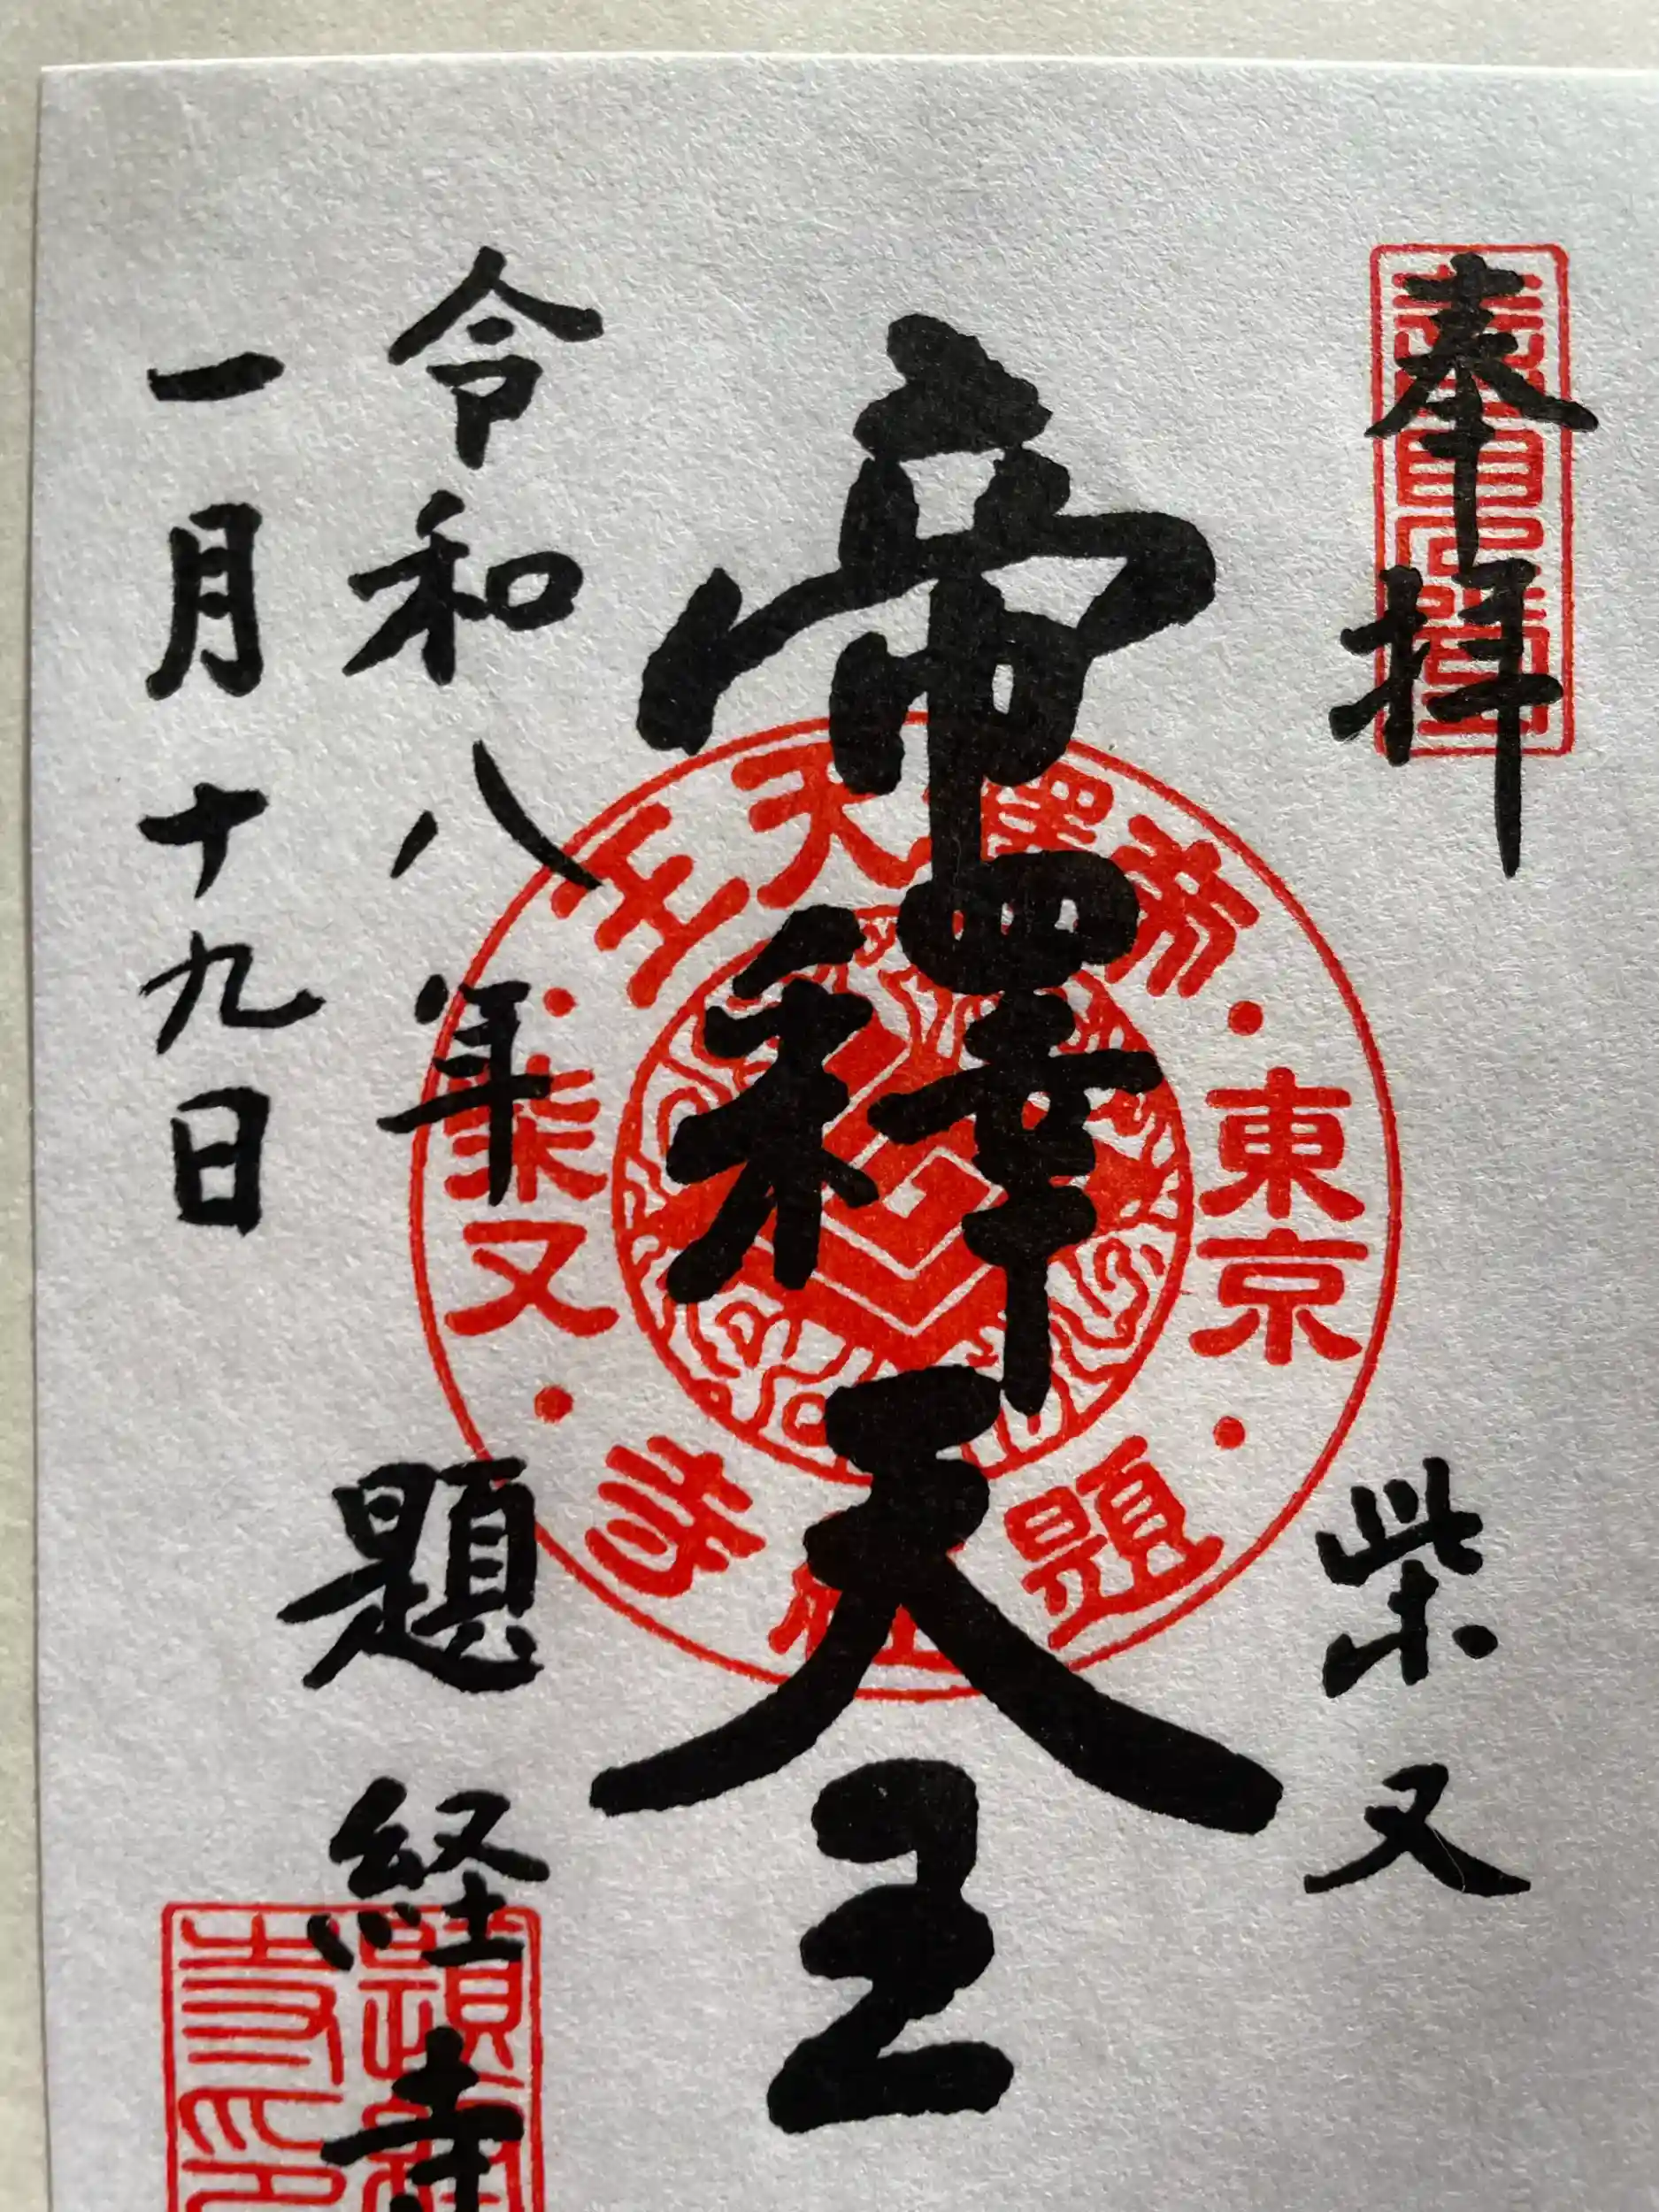 奉拝
柴又
帝釋天王
令和八年
一月十九日
題経寺
東京
帝釋天王
柴又
題経寺